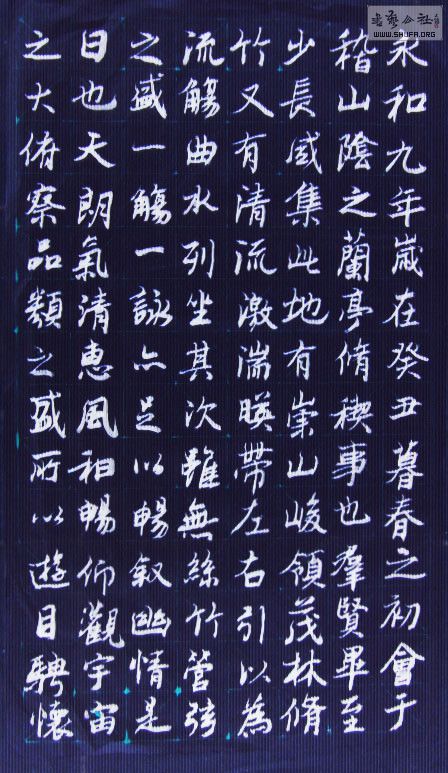 永和九年歲在癸丑暮春之初會于
稽山陰之蘭亭脩稧事也羣賢畢至
少長咸集此地有崇山峻領茂林脩
竹又有清流激湍暎帶左右引以為
流觴曲水列坐其次雖無絲竹管弦
之盛一觴一詠亦足以暢叙幽情是
日也天朗氣清惠風和暢仰觀宇宙
之大俯察品類之盛所以遊目騁懷
WWW.SHUFA.ORG